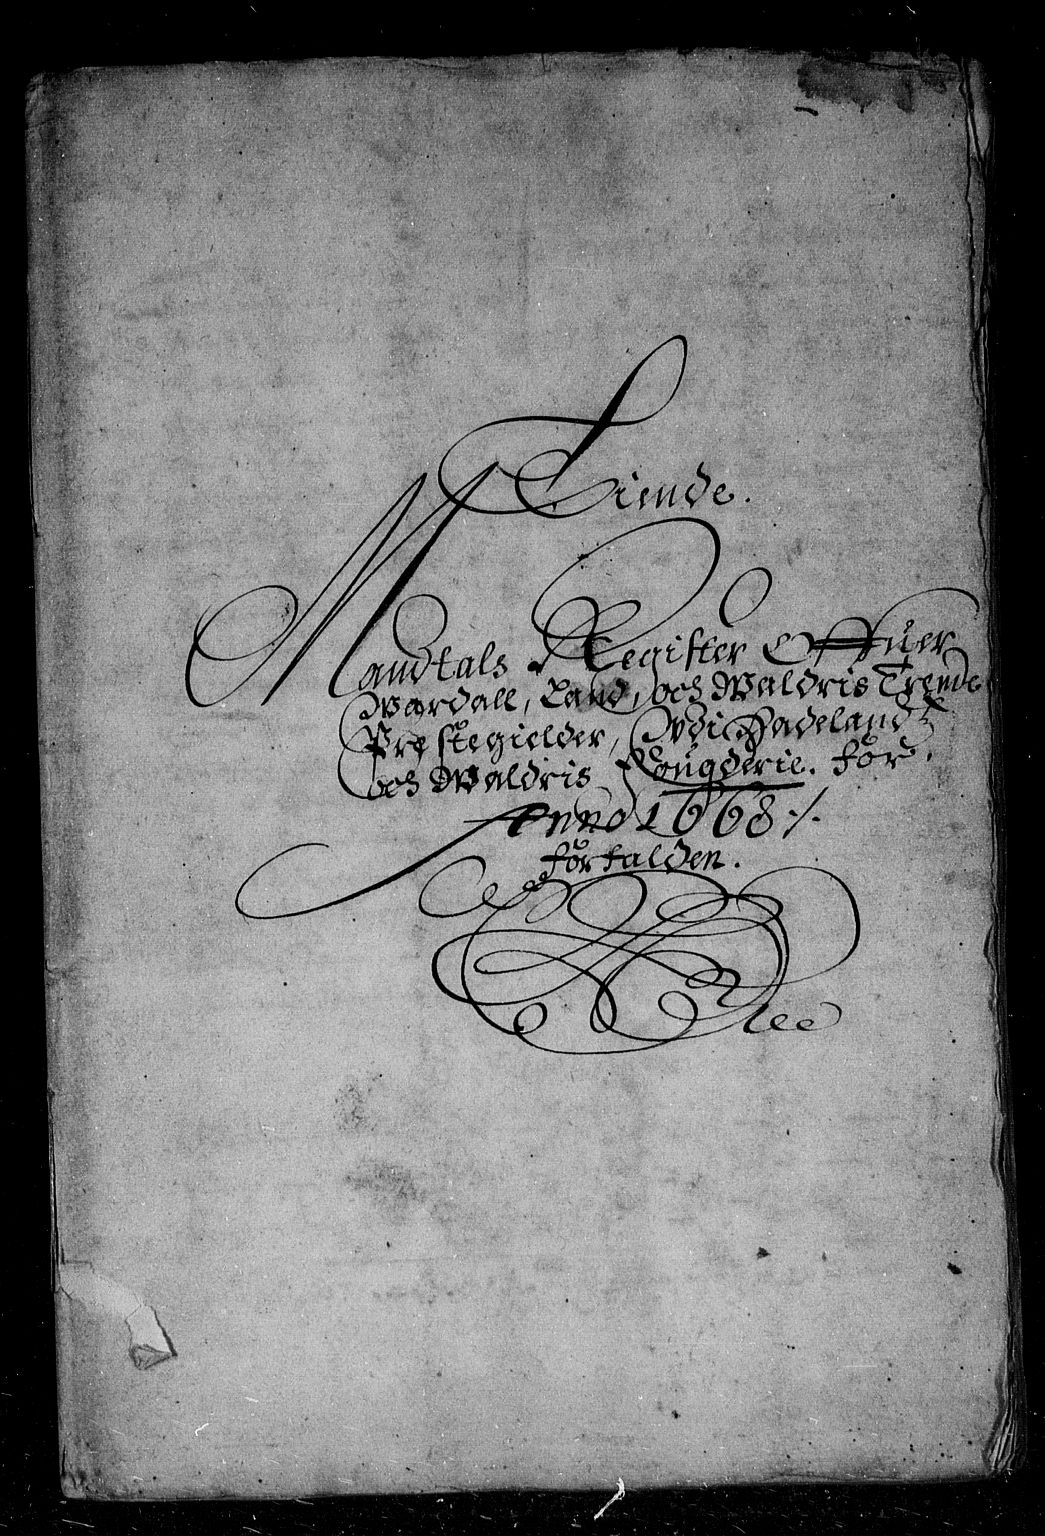 Tiende.
Mandtals Register Offuer
Wardall, Land, och Waldris Trende
Prestegielder, Wdi Hadelands
och Waldris Fougderie. for.
Anno 1668 ./.
forfalden.